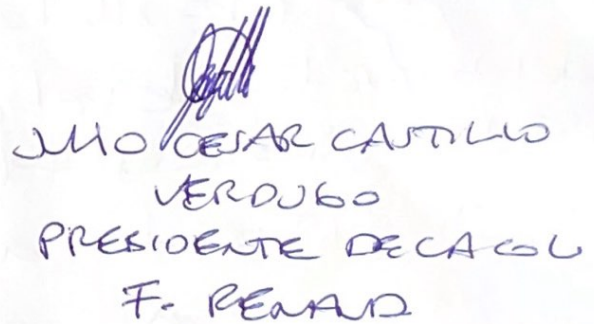 JULIO CESAR CASTILLO
VERDUGO
PRESIDENTE DECACOL
F. RENAND